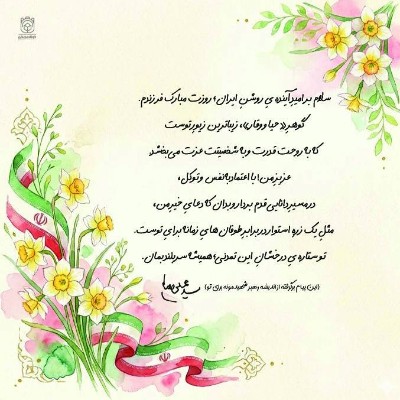 سلام بر امید آینده‌ی روشن ایران؛ روزت مبارک فرزندم.
گوهرِ حیا و وقار، زیباترین زیور توست
که به روحت قدرت و به شخصیتت عزت می‌بخشد
عزیز من! با اعتماد به نفس و توکل،
در مسیر دانایی قدم بردار و بدان که دعای خیر من،
مثل یک زره استوار در برابر طوفان‌های زمانه برای توست.
تو ستاره‌ی درخشان این تمدنی؛ همیشه سربلند بمان.
(این پیام برگرفته از اندیشه رهبر شهیدمونه برای تو)